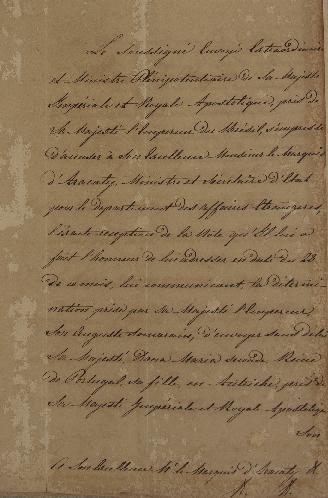 Le Soussigné Envoyé Extraordinaire
et Ministre Plénipotentiaire de Sa Majesté
Impériale et Royale Apostolique, près de
Sa Majesté l'Empereur du Brésil, s'empresse
d'accuser à Son Excellence Monsieur le Marquis
d'Aracaty, Ministre et Secrétaire d'Etat
pour le département des affaires Etrangères,
l'exacte reception de la Note qu'Elle lui a
fait l'honneur de lui adresser en date du 23
de ce mois, lui communicant la détermi-
nation prise par Sa Majesté l'Empereur
Son Auguste Souverain, d'envoyer sans délai
Sa Majesté, Dona Maria seconde Reine
de Portugal, sa fille, en Autriche, près de
Sa Majesté Impériale et Royale Apostolique
Son
A Son Excellence Mr. le Marquis d'Aracaty &
&. &.